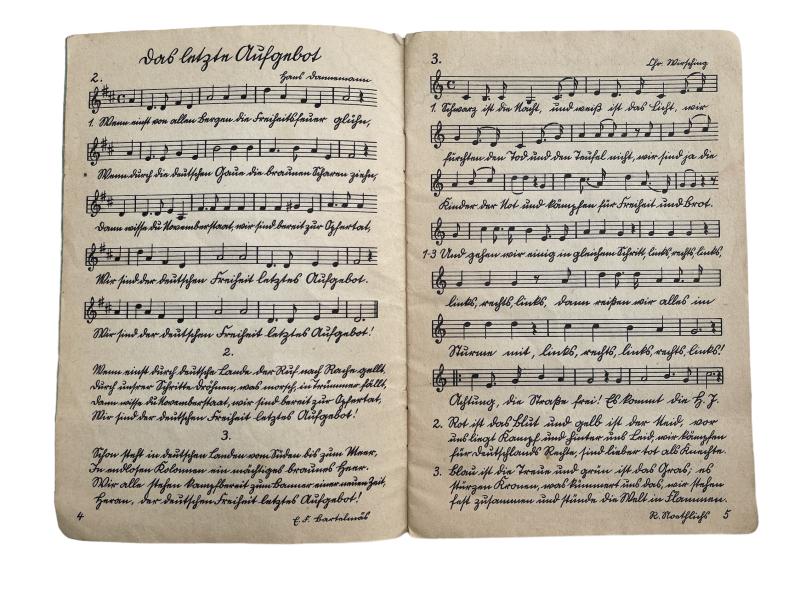 Das letzte Aufgebot
2.
Hans Dannemann
1. Wenn einst von allen Bergen die Freiheitsfeuer glühn,
Wenn durch die deutschen Gaue die braunen Scharen ziehn,
Dann wisse du Novemberstaat, wir sind bereit zur Opfertat,
Wir sind der deutschen Freiheit letztes Aufgebot.
Wir sind der deutschen Freiheit letztes Aufgebot!
2.
Wenn einst durch deutsche Lande der Ruf nach Rache gellt,
durch unsrer Schritte Dröhnen, was morsch, in Trümmer fällt,
Dann wisse du Novemberstaat, wir sind bereit zur Opfertat,
Wir sind der deutschen Freiheit letztes Aufgebot!
3.
Schon steht in deutschen Landen vom Süden bis zum Meer,
In endlosen Kolonnen ein mächtiges braunes Heer.
Wir alle stehen kampfbereit zum Banner einer neuen Zeit,
Heran, der deutschen Freiheit letztes Aufgebot!
4
E. F. Bartelmäs
3.
Chr. Wirsching
1. Schwarz ist die Nacht, und weiß ist das Licht, wir
fürchten den Tod und den Teufel nicht, wir sind ja die
Kinder der Not und kämpfen für Freiheit und Brot.
1-3 Und gehen wir einig in gleichem Schritt, links, rechts, links,
links, rechts, links, dann reißen wir alles im
Sturme mit, links, rechts, links, rechts, links!
Achtung, die Straße frei! Es kommt die H. J.
2. Rot ist das Blut und gelb ist der Neid, vor
uns liegt Kampf und hinter uns Leid, wir kämpfen
für Deutschlands Rechte, sind lieber tot als Knechte.
3. Blau ist die Treue und grün ist das Gras; es
stürzen Kronen, was kümmert uns das, wir stehen
fest zusammen und stünde die Welt in Flammen.
R. Noethlichs 5